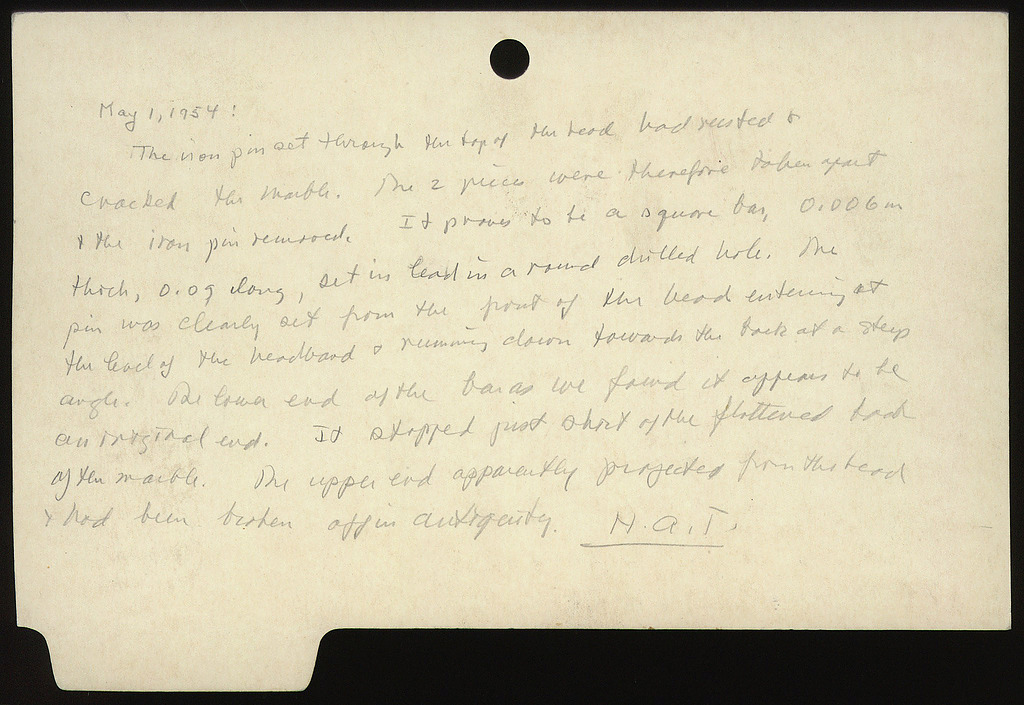 May 1, 1954:
The iron pin set through the top of the head had rusted &
cracked the marble. The 2 pieces were therefore taken apart
& the iron pin removed. It proves to be a square bar, 0.006m
thick, 0.09 long, set in lead in a round drilled hole. The
pin was clearly set from the front of the head entering at
the level of the headband & running down towards the back at a steep
angle. The lower end of the bar as we found it appears to be
an original end. It stopped just short of the flattened back
of the marble. The upper end apparently projected from the head
& had been broken off in antiquity. H.A.T.